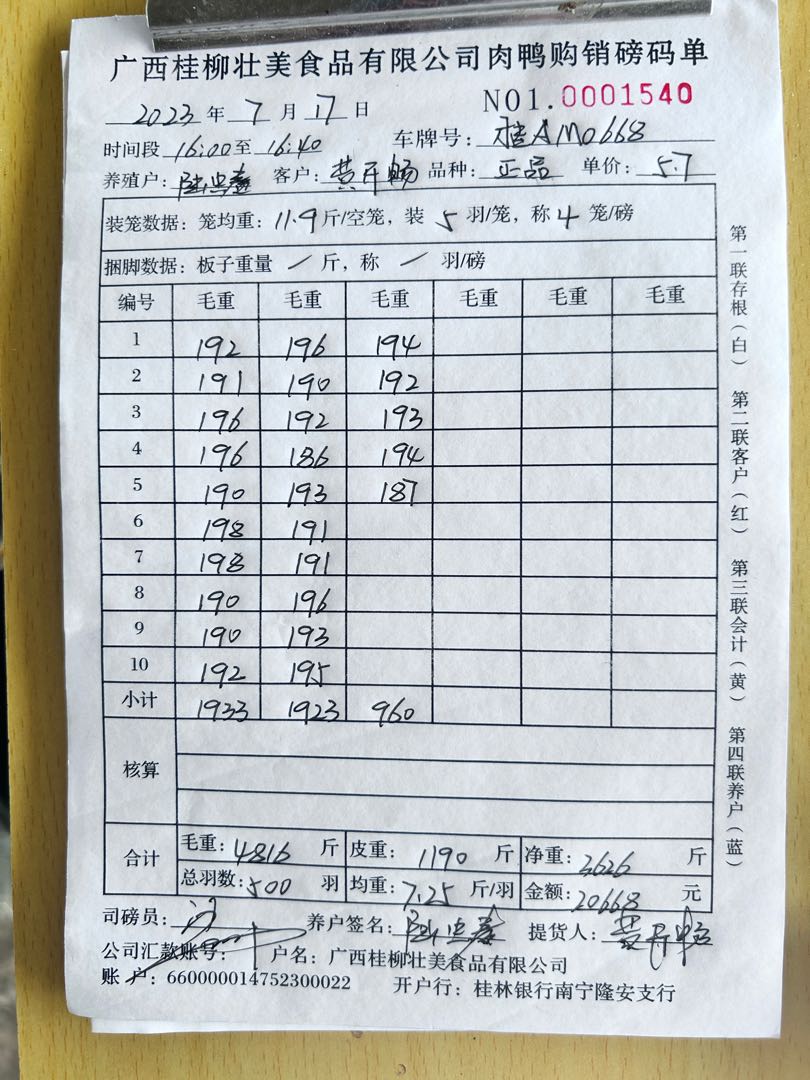 广西桂柳壮美食品有限公司肉鸭购销磅码单
2023年7月17日 NO1.0001540
时间段16:00至16:40 车牌号:桂AM0668
养殖户: 客户:黄开畅 品种:正品 单价:5.7
装笼数据:笼均重:11.9斤/空笼,装5羽/笼,称4笼/磅
捆脚数据:板子重量/斤,称/羽/磅
编号 毛重 毛重 毛重 毛重 毛重 毛重
1 192 196 194
2 191 190 192
3 196 192 193
4 196 186 194
5 190 193 187
6 198 191
7 198 191
8 190 196
9 190 193
10 192 195
小计 1933 1923 960
核算
合计 毛重:4816斤 皮重:1190斤 净重:3626斤
总羽数:500羽 均重:7.25斤/羽 金额:20668元
司磅员: 养户签名: 提货人:黄开畅
公司汇款账号: 户名:广西桂柳壮美食品有限公司
账户:660000014752300022 开户行:桂林银行南宁隆安支行
第一联存根(白) 第二联客户(红) 第三联会计(黄) 第四联养户(蓝)